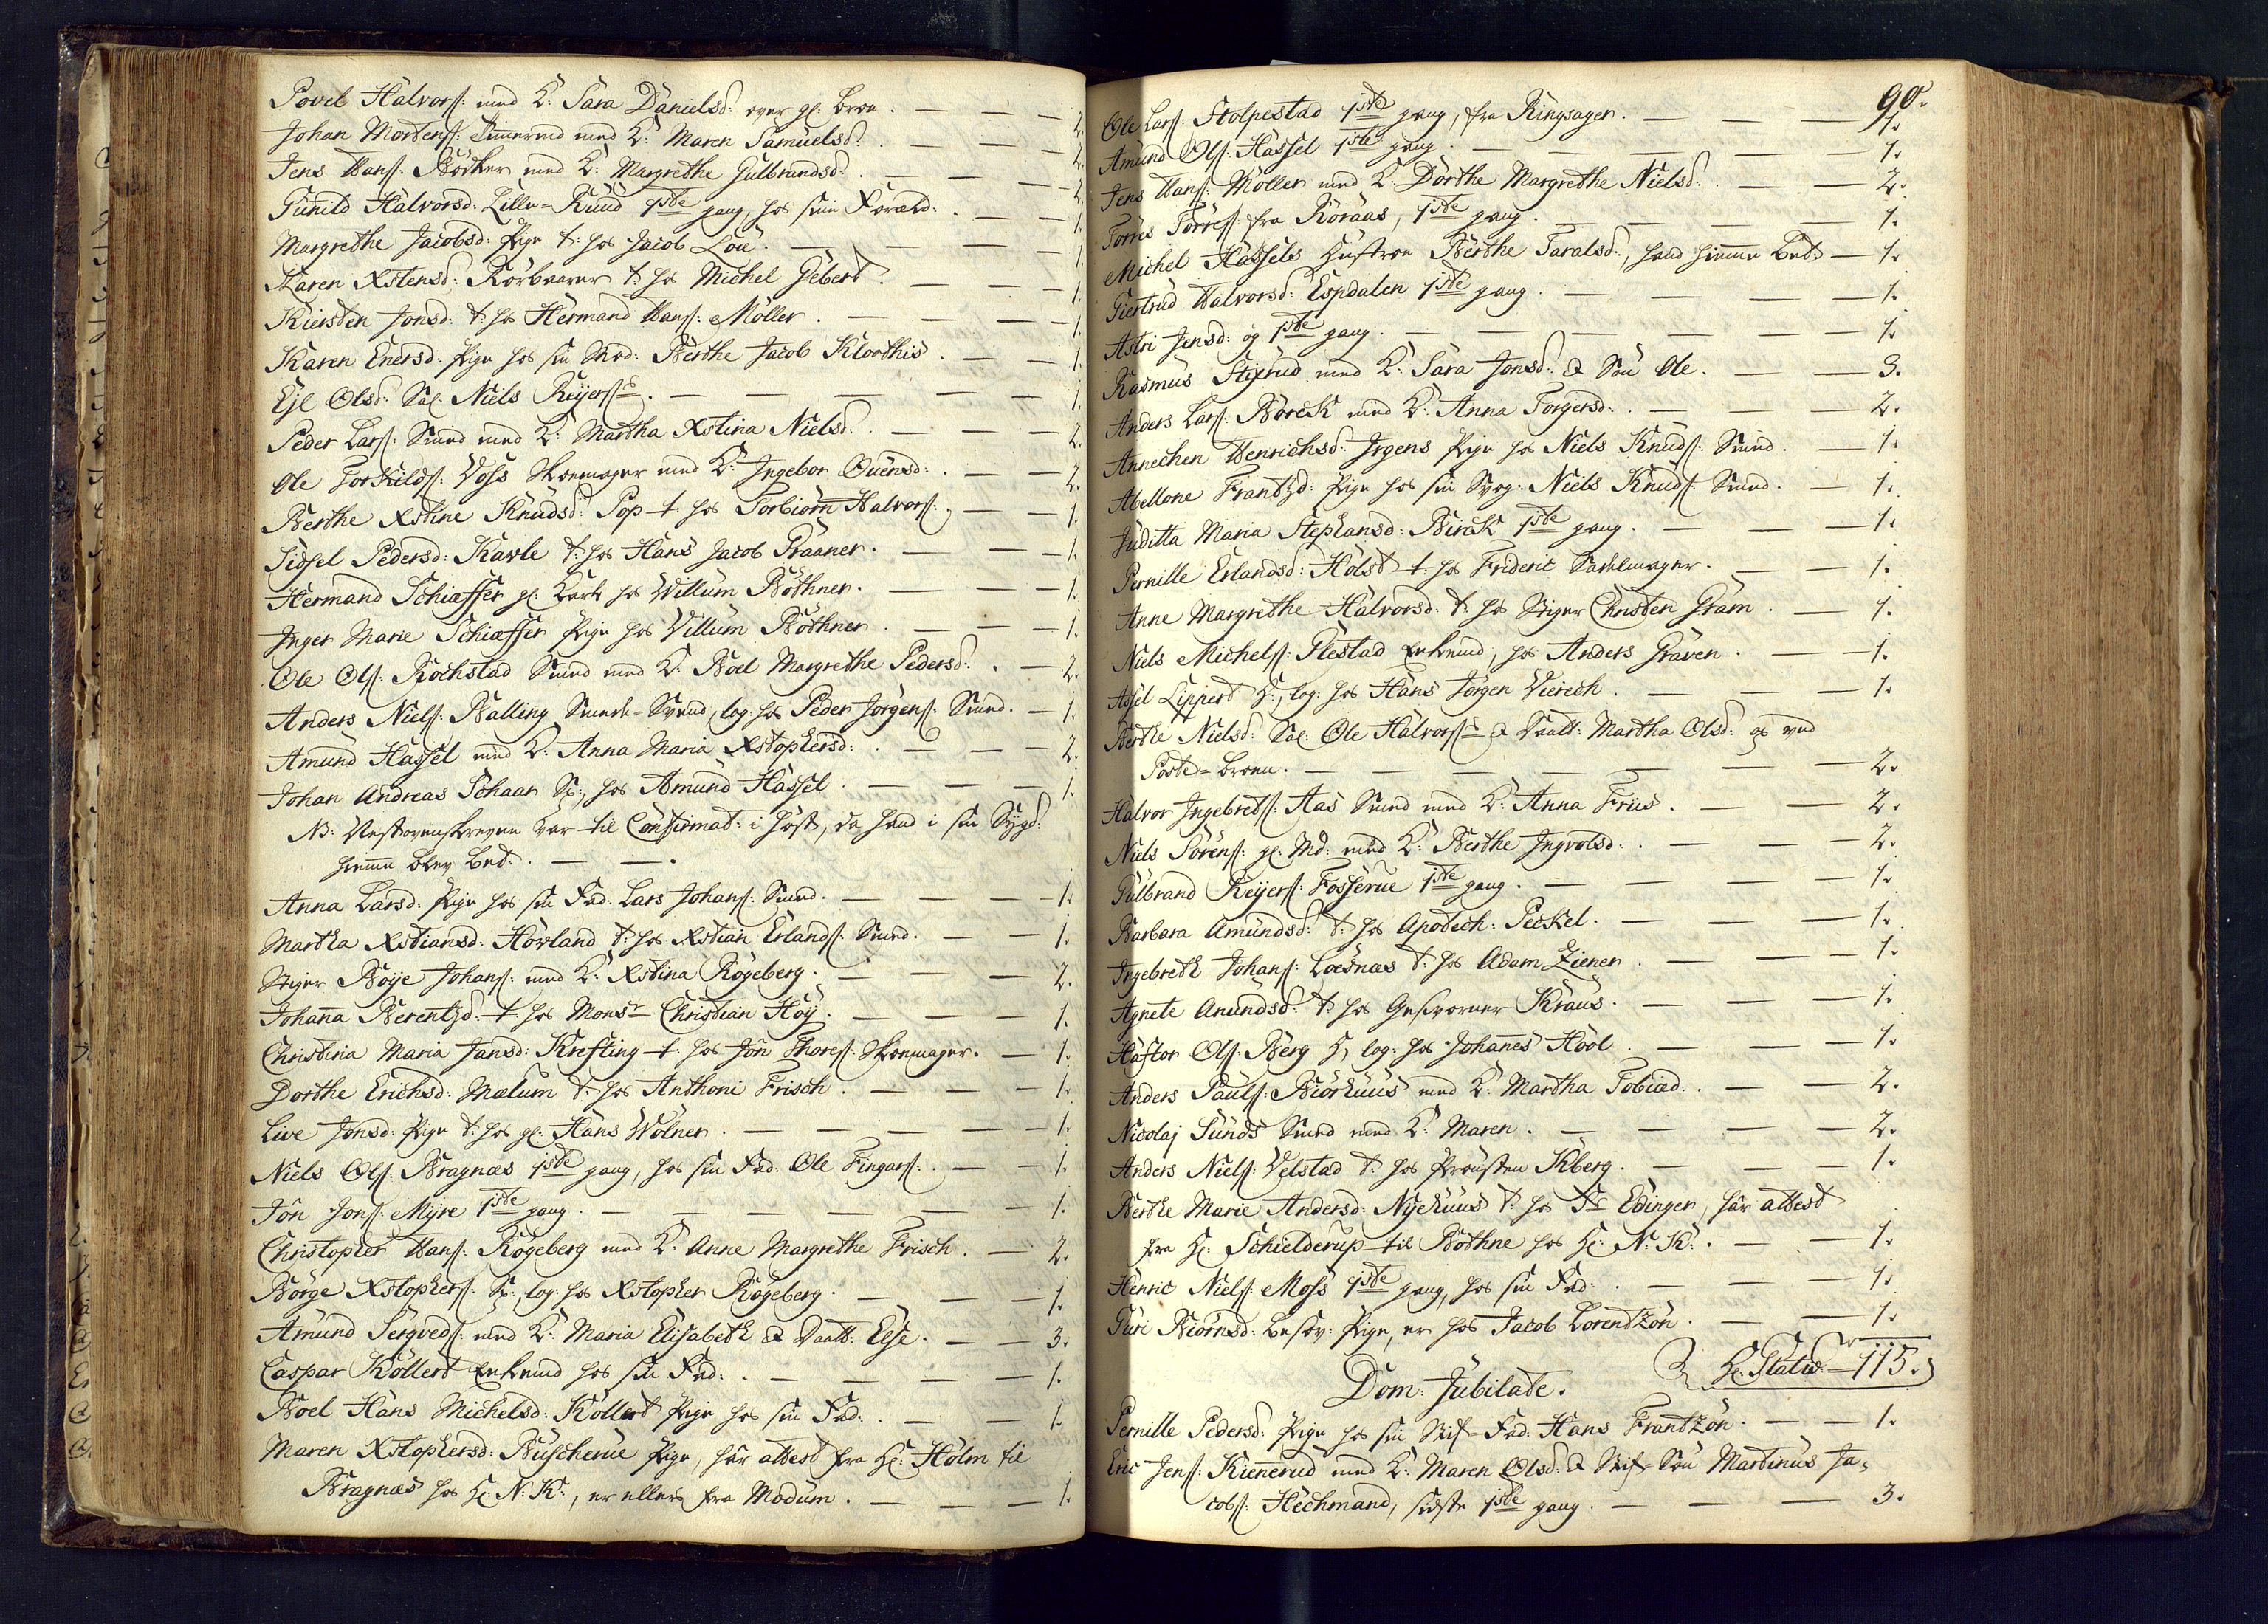 Povel Halvors: med K: Sara Danielsd: over gl: Broe. 2.
Johan Mortens: Timmermd med K: Maren Samuelsd: 2.
Jens Hans: Bödker med K: Margrethe Gulbrandsd: 2.
Gunild Halvorsd: Lille-Ruud 1ste gang, hos sine Foræld: 1.
Margrethe Jacobsd: Pige t: hos Jacob Löü. 1.
Karen Xstensd: Korbvaarer t: hos Michel Gebert. 1.
Kiersten Jonsd: t: hos Hermand Hans: Möller. 1.
Karen Enersd: Pige hos sin Mod: Berthe Jacob Kloothis. 1.
Ejl Olsd: Sal: Niels Reijers: 1.
Peder Lars: Smed med K: Martha Xstina Nielsd: 2.
Ole Torkilds: Voss Skoemager med K: Ingebor Ouensd: 2.
Berthe Xstine Knudsd: Pop t: hos Torbiörn Halvors: 1.
Sidsel Pedersd: Kavle t: hos Hans Jacob Graaner. 1.
Hermand Schiæffer gl: Karl hos Willum Böthner. 1.
Inger Marie Schiæffer Pige hos Villum Böthner. 1.
Ole Ols: Rochstad Smed med K: Boel Margrethe Pedersd: 2.
Anders Niels: Balling Smede-Svend, log: hos Peder Jörgens: Smed. 1.
Amund Hassel med K: Anna Maria Xstophersd: 2.
Johan Andreas Schaar S:, hos Amund Hassel. 1.
NB: Næstovenskrevne var til Confirmat: i Höst, da hand i sin Sygd:
hiemme blev bet:
Anna Larsd: Pige hos sin Fad: Lars Johans: Smed. 1.
Martha Xstiansd: Howland t: hos Xstian Erlands: Smed. 1.
Stiger Böije Johans: med K: Xstina Rögeberg. 2.
Johanna Berentzd: t: hos Monsr Christian Höÿ. 1.
Christina Maria Jansd: Krefting t: hos Jon Thores: Skoemager. 1.
Dorthe Erichsd: Mælum t: hos Anthoni Frisch. 1.
Live Jonsd: Pige t: hos gl: Hans Wölner. 1.
Niels Ols: Bragnæs 1ste gang, hos sin Fad: Ole Fingars: 1.
Jon Jons: Myre 1ste gang. 1.
Christopher Hans: Rögeberg med K: Anne Margrethe Frisch. 2.
Börge Xstophers: S:, log: hos Xstopher Rögeberg. 1.
Amund Sergveds: med K: Maria Elisabeth & Daatt: Else. 3.
Caspar Köllert Enkemd hos sin Fad: 1.
Boel Hans Michelsd: Kollert Pige hos sin Fad: 1.
Maren Xstophersd: Buscherue Pige, har attest fra Hr: Holm til
Bragnæs hos Hr: N: K:, er ellers fra Modum. 1.
90.
Ole Lars: Stolpestad 1ste gang, fra Ringsager. 1.
Amund Ols: Hassel 1ste gang. 1.
Jens Hans: Möller med K: Dorthe Margrethe Nielsd: 2.
Torres Torres: fra Röraas, 1ste gang. 1.
Michel Hassels Hustroe Berthe Taralsd:, hand hiemme Bet: 1.
Giertrud Halvorsd: Espdalen 1ste gang. 1.
Astri Jensd: og 1ste gang. 1.
Rasmus Stixrud med K: Sara Jonsd: & Sön Ole. 3.
Anders Lars: Borck med K: Anna Torgersd: 2.
Annechen Henrichsd: Jrgens Pige hos Niels Knuds: Smed. 1.
Abellone Frantzd: Pige hos sin Svog: Niels Knuds: Smed. 1.
Juditta Maria Stephansd: Birck 1ste gang. 1.
Pernille Erlandsd: Holst t: hos Frideric Sadelmager. 1.
Anne Margrethe Halvorsd: t: hos Stiger Christen Gram. 1.
Niels Michels: Plestad Enkemd, hos Anders Graven. 1.
Assel Lippert K:, log: hos Hans Jörgen Vierech. 1.
Berthe Nielsd: Sal: Ole Halvors: & Daatt: Martha Olsd: og ved
Porte-broen. 2.
Halvor Ingebrets: Aas Smed med K: Anna Friis. 2.
Niels Sörens: gl: Md: med K: Berthe Ingvolsd: 2.
Gulbrand Reijers: Fosserue 1ste gang. 1.
Barbara Amundsd: t: hos Apotech: Peckel. 1.
Ingebreth Johans: Loesnæs t: hos Adam Ziener. 1.
Agnete Anundsd: t: hos Gesvorner Kraus. 1.
Haftor Ols: Berg K, log: hos Johannes Hool. 1.
Anders Pauls: Biörhuus med K: Martha Tobiæd: 2.
Nicolaj Sunds Smed med K: Maren. 2.
Anders Niels: Velstad t: hos Prousten Kberg. 1.
Berthe Marie Andersd: Nyehuus t: hos Sr Edinger, har attest
fra Hr: Schielderup til Böthne hos Hr: N: K: 1.
Henric Niels: Moss 1ste gang, hos sin Fad: 1.
Guri Biörnsd: besov: Pige, er hos Jacob Lorentzön. 1.
Hr: Statw: 115.
Dom: Jubilate.
Pernille Pedersd: Pige hos sin Stif-Fad: Hans Frantzön. 1.
Eric Jens: Kiennerud med K: Maren Olsd: & Stif-Sön Martinus Ja-
cobs: Hechmand, sidste 1ste gang. 3.